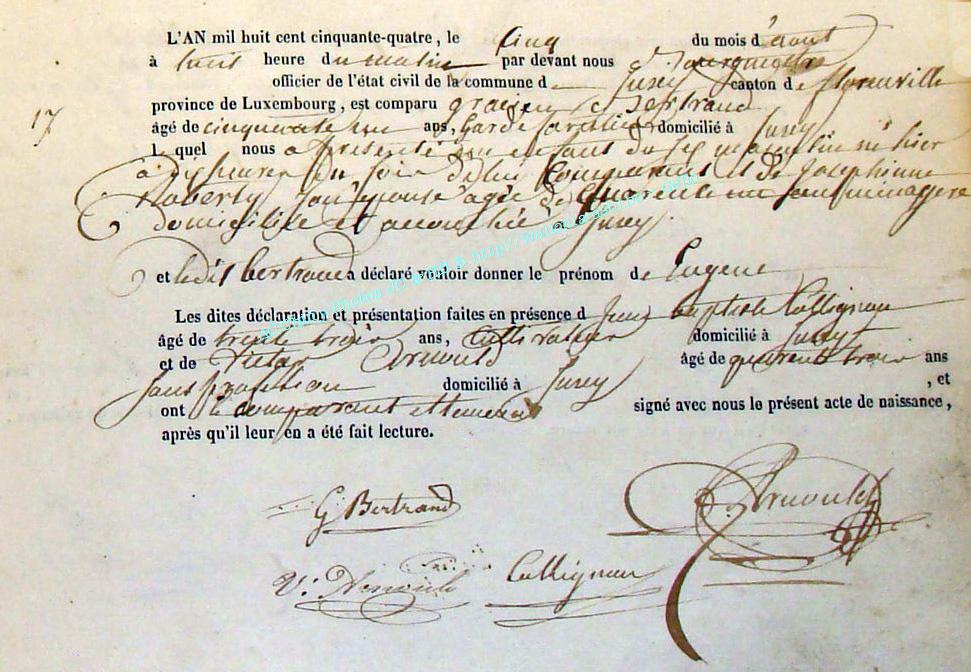 L'AN mil huit cent cinquante-quatre, le cinq du mois d'août
à huit heure du matin par devant nous
officier de l'état civil de la commune de Jusey canton de florenville
province de Luxembourg, est comparu gracien Bertrand
17 âgé de cinquante un ans, Garde forestier domicilié à Jusey
lequel nous a présenté un enfant du sexe masculin né hier
à dix heures du soir de lui comparant et de Josephinne
Roberty son épouse agée de quarente un ans ménagere
domicilié et accouchée à Jusey
et ledit bertrand a déclaré vouloir donner le prénom de Eugene
Les dites déclaration et présentation faites en présence de Jean baptiste Collignon
âgé de trente trois ans, cultivateur domicilié à Jusey
et de Victor Arnould âgé de quarente trois ans
sans profession domicilié à Jusey , et
ont le comparant et temoins signé avec nous le présent acte de naissance,
après qu'il leur en a été fait lecture.
G Bertrand
Arnould
V. Arnould Collignon